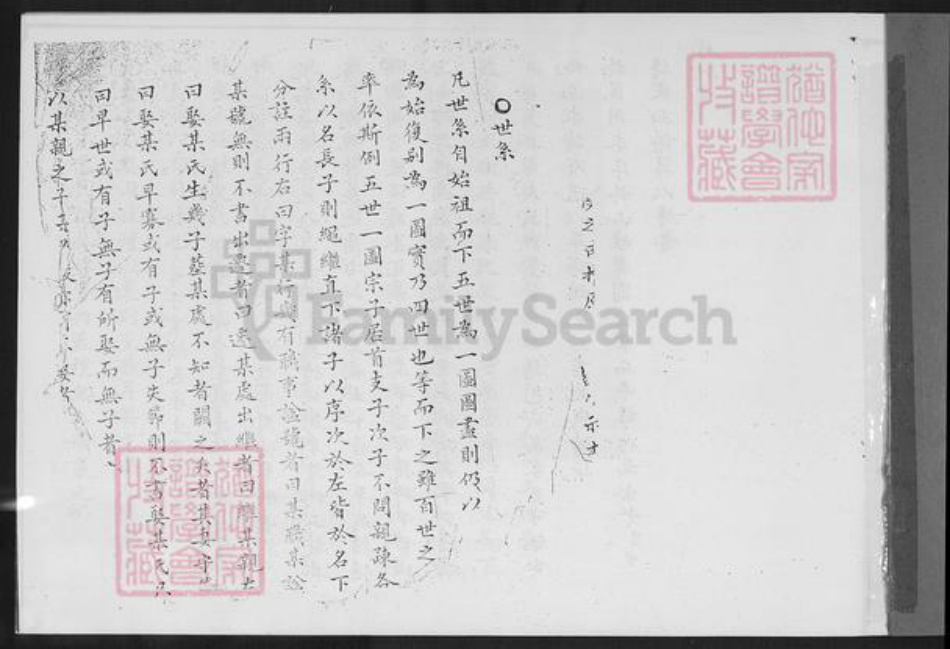 ○世系
凡世系自始祖而下五世為一圖圖盡則仍以
為始復别為一圖實乃四世也等而下之雖百世之
率依斯例五世一圖宗子居首支子次子不問親疎各
系以名長子則繩繼直下諸子以序次於左皆於名下
分註兩行右曰字某行 有職事諡號者曰某職某諡
某號無則不書出遷者曰遷某處出繼者曰 某親
曰娶某氏生幾子葬某處不知者闕之夫者其妻守
曰娶某氏早寡或有子或無子失節則不書娶某氏
曰早世或有子無子有所娶而無子者
以某親之子
猶他家譜學會收藏
猶他家譜學會收藏
FamilySearch